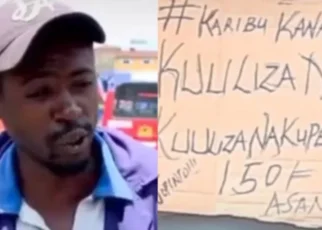 #KARIBU KANA
KUULIZA NJ
KUULIZA NAKUPE
150F
ASAN